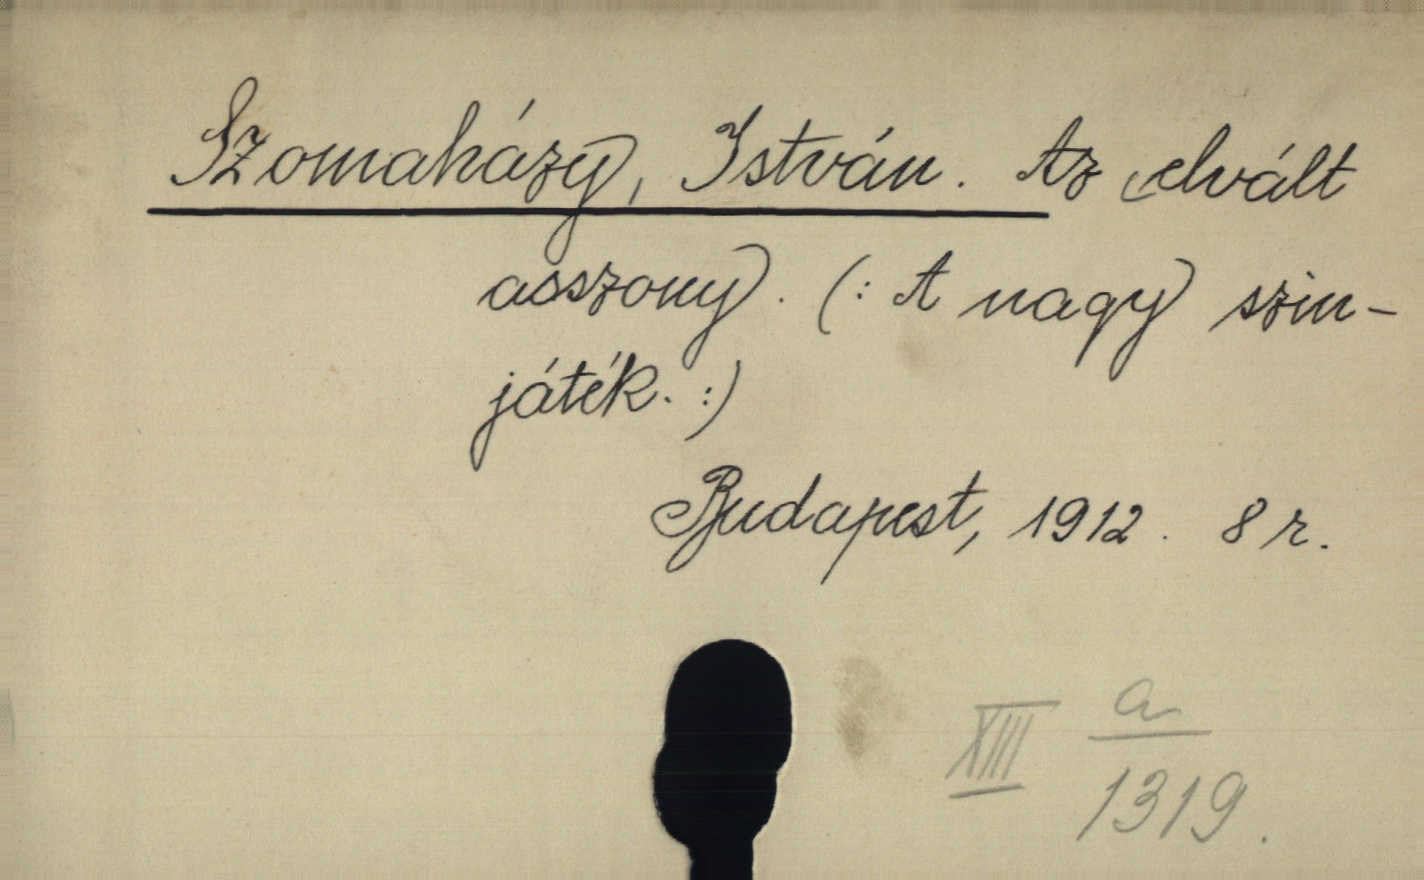 Szomaházy, István. Az elvált
asszony. (: A nagy szin-
játék. :)
Budapest, 1912. 8 r.
XIII a
1319.